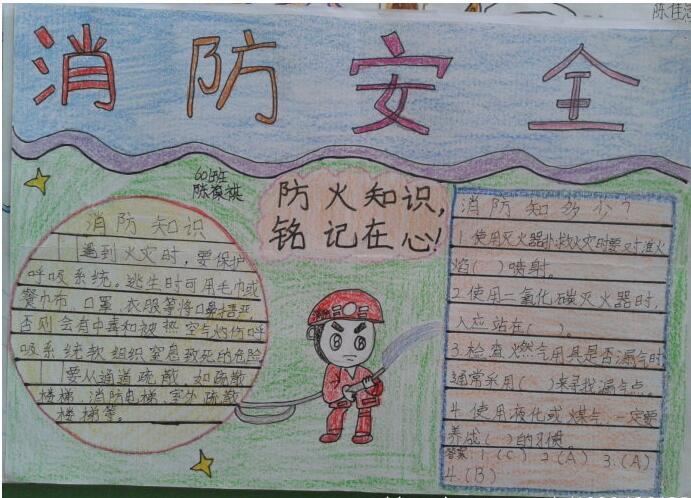 陈佳
消防安全
601班
陈筱祺
防火知识,
铭记在心!
消防知识
遇到火灾时,要保护
呼吸系统。逃生时可用毛巾或
餐巾布、口罩、衣服等将口鼻捂严
否则会有中毒和被热空气灼伤呼
吸系统软组织窒息致死的危险
要从通道疏散,如疏散
楼梯、消防电梯、室外疏散
楼梯等。
消防知多少?
1.使用灭火器扑救火灾时要对准火
焰( )喷射。
2.使用二氧化碳灭火器时,
人应站在( )。
3.检查燃气用具是否漏气时
通常采用( )来寻找漏气点。
4.使用液化或煤气,一定要
养成( )的习惯。
答案:1.(C) 2(A) 3.(A)
4.(B)